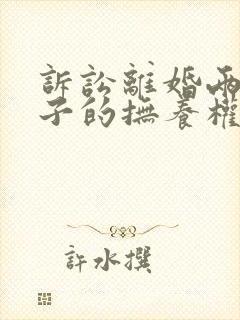 訴訟離婚兩
子的撫養權
許水撰